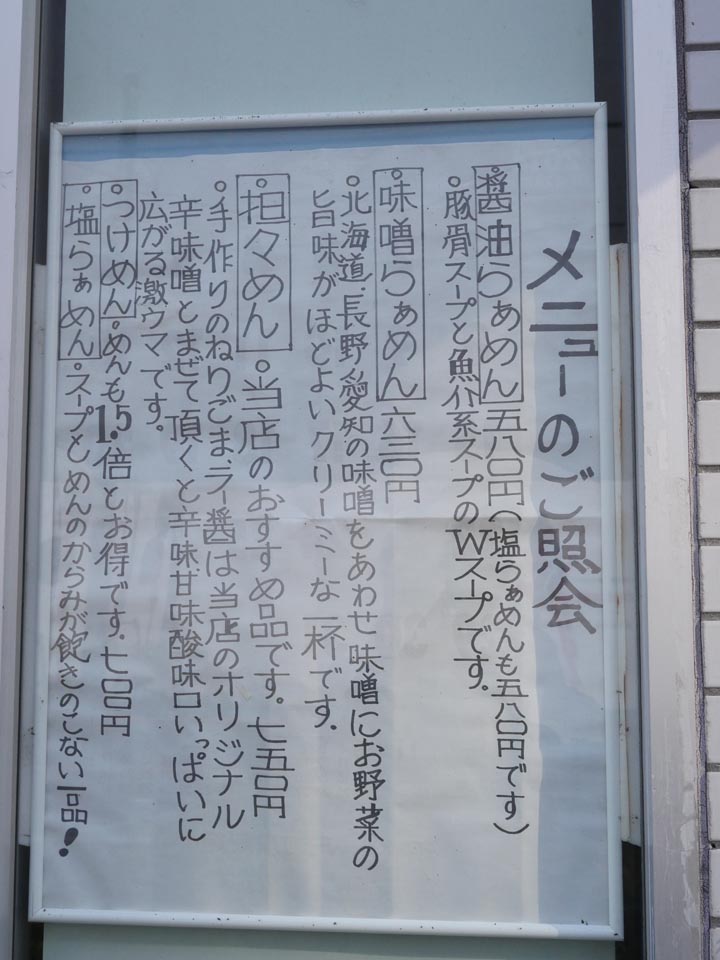 メニューのご照会
醤油らぁめん 五八〇円(塩らぁめんも五八〇円です)
・豚骨スープと魚介系スープのWスープです。
味噌らぁめん 六三〇円
・北海道・長野・愛知の味噌をあわせ味噌にお野菜の
旨味がほどよいクリーミーな一杯です.
・担々めん ・当店のおすすめ品です。七五〇円
・手作りのねりごま、ラー醤は当店のオリジナル
辛味噌とまぜて頂くと辛味甘味酸味口いっぱいに
広がる激ウマです。
・つけめん・めんも1.5倍とお得です.七〇〇円
・塩らぁめん・スープとめんのからみが飽きのこない一品!